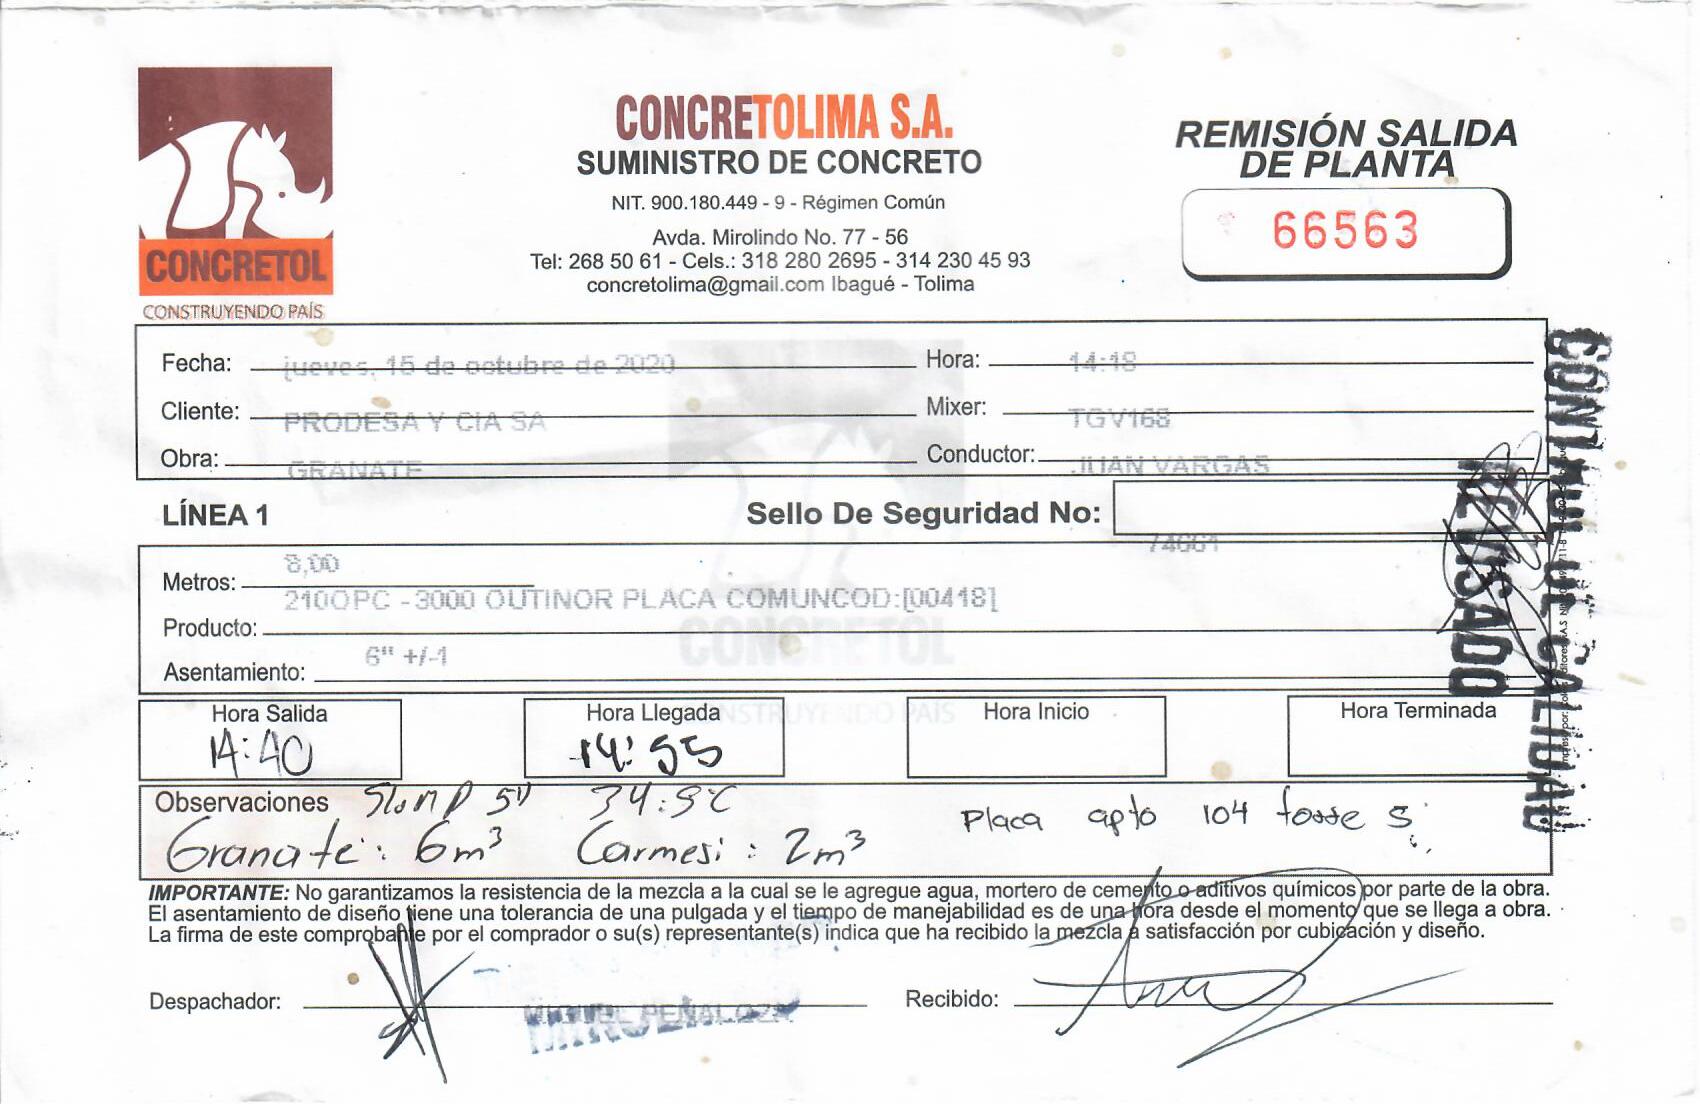 CONCRETOL
CONSTRUYENDO PAÍS
CONCRETOLIMA S.A.
SUMINISTRO DE CONCRETO
NIT. 900.180.449 - 9 - Régimen Común
Avda. Mirolindo No. 77 - 56
Tel: 268 50 61 - Cels.: 318 280 2695 - 314 230 45 93
concretolima@gmail.com Ibagué - Tolima
REMISIÓN SALIDA
DE PLANTA
66563
Fecha: jueves, 15 de octubre de 2020 Hora: 14:18
Cliente: PRODESA Y CIA SA Mixer: TGV168
Obra: GRANATE Conductor: JUAN VARGAS
LÍNEA 1 Sello De Seguridad No: 74661
Metros: 8,00
Producto: 210OPC -3000 OUTINOR PLACA COMUNCOD:[00418]
Asentamiento: 6" +/-1
CONCRETOL
CONSTRUYENDO PAÍS
Hora Salida Hora Llegada Hora Inicio Hora Terminada
14:40 14:55
Observaciones Slump 5" 34.9°C Placa apto 104 torre 5
Granate: 6m³ Carmesi: 2m³
IMPORTANTE: No garantizamos la resistencia de la mezcla a la cual se le agregue agua, mortero de cemento o aditivos químicos por parte de la obra.
El asentamiento de diseño tiene una tolerancia de una pulgada y el tiempo de manejabilidad es de una hora desde el momento que se llega a obra.
La firma de este comprobante por el comprador o su(s) representante(s) indica que ha recibido la mezcla a satisfacción por cubicación y diseño.
Despachador: MIGUEL PEÑALOZA Recibido:
CONTROL DE CALIDAD
REVISADO